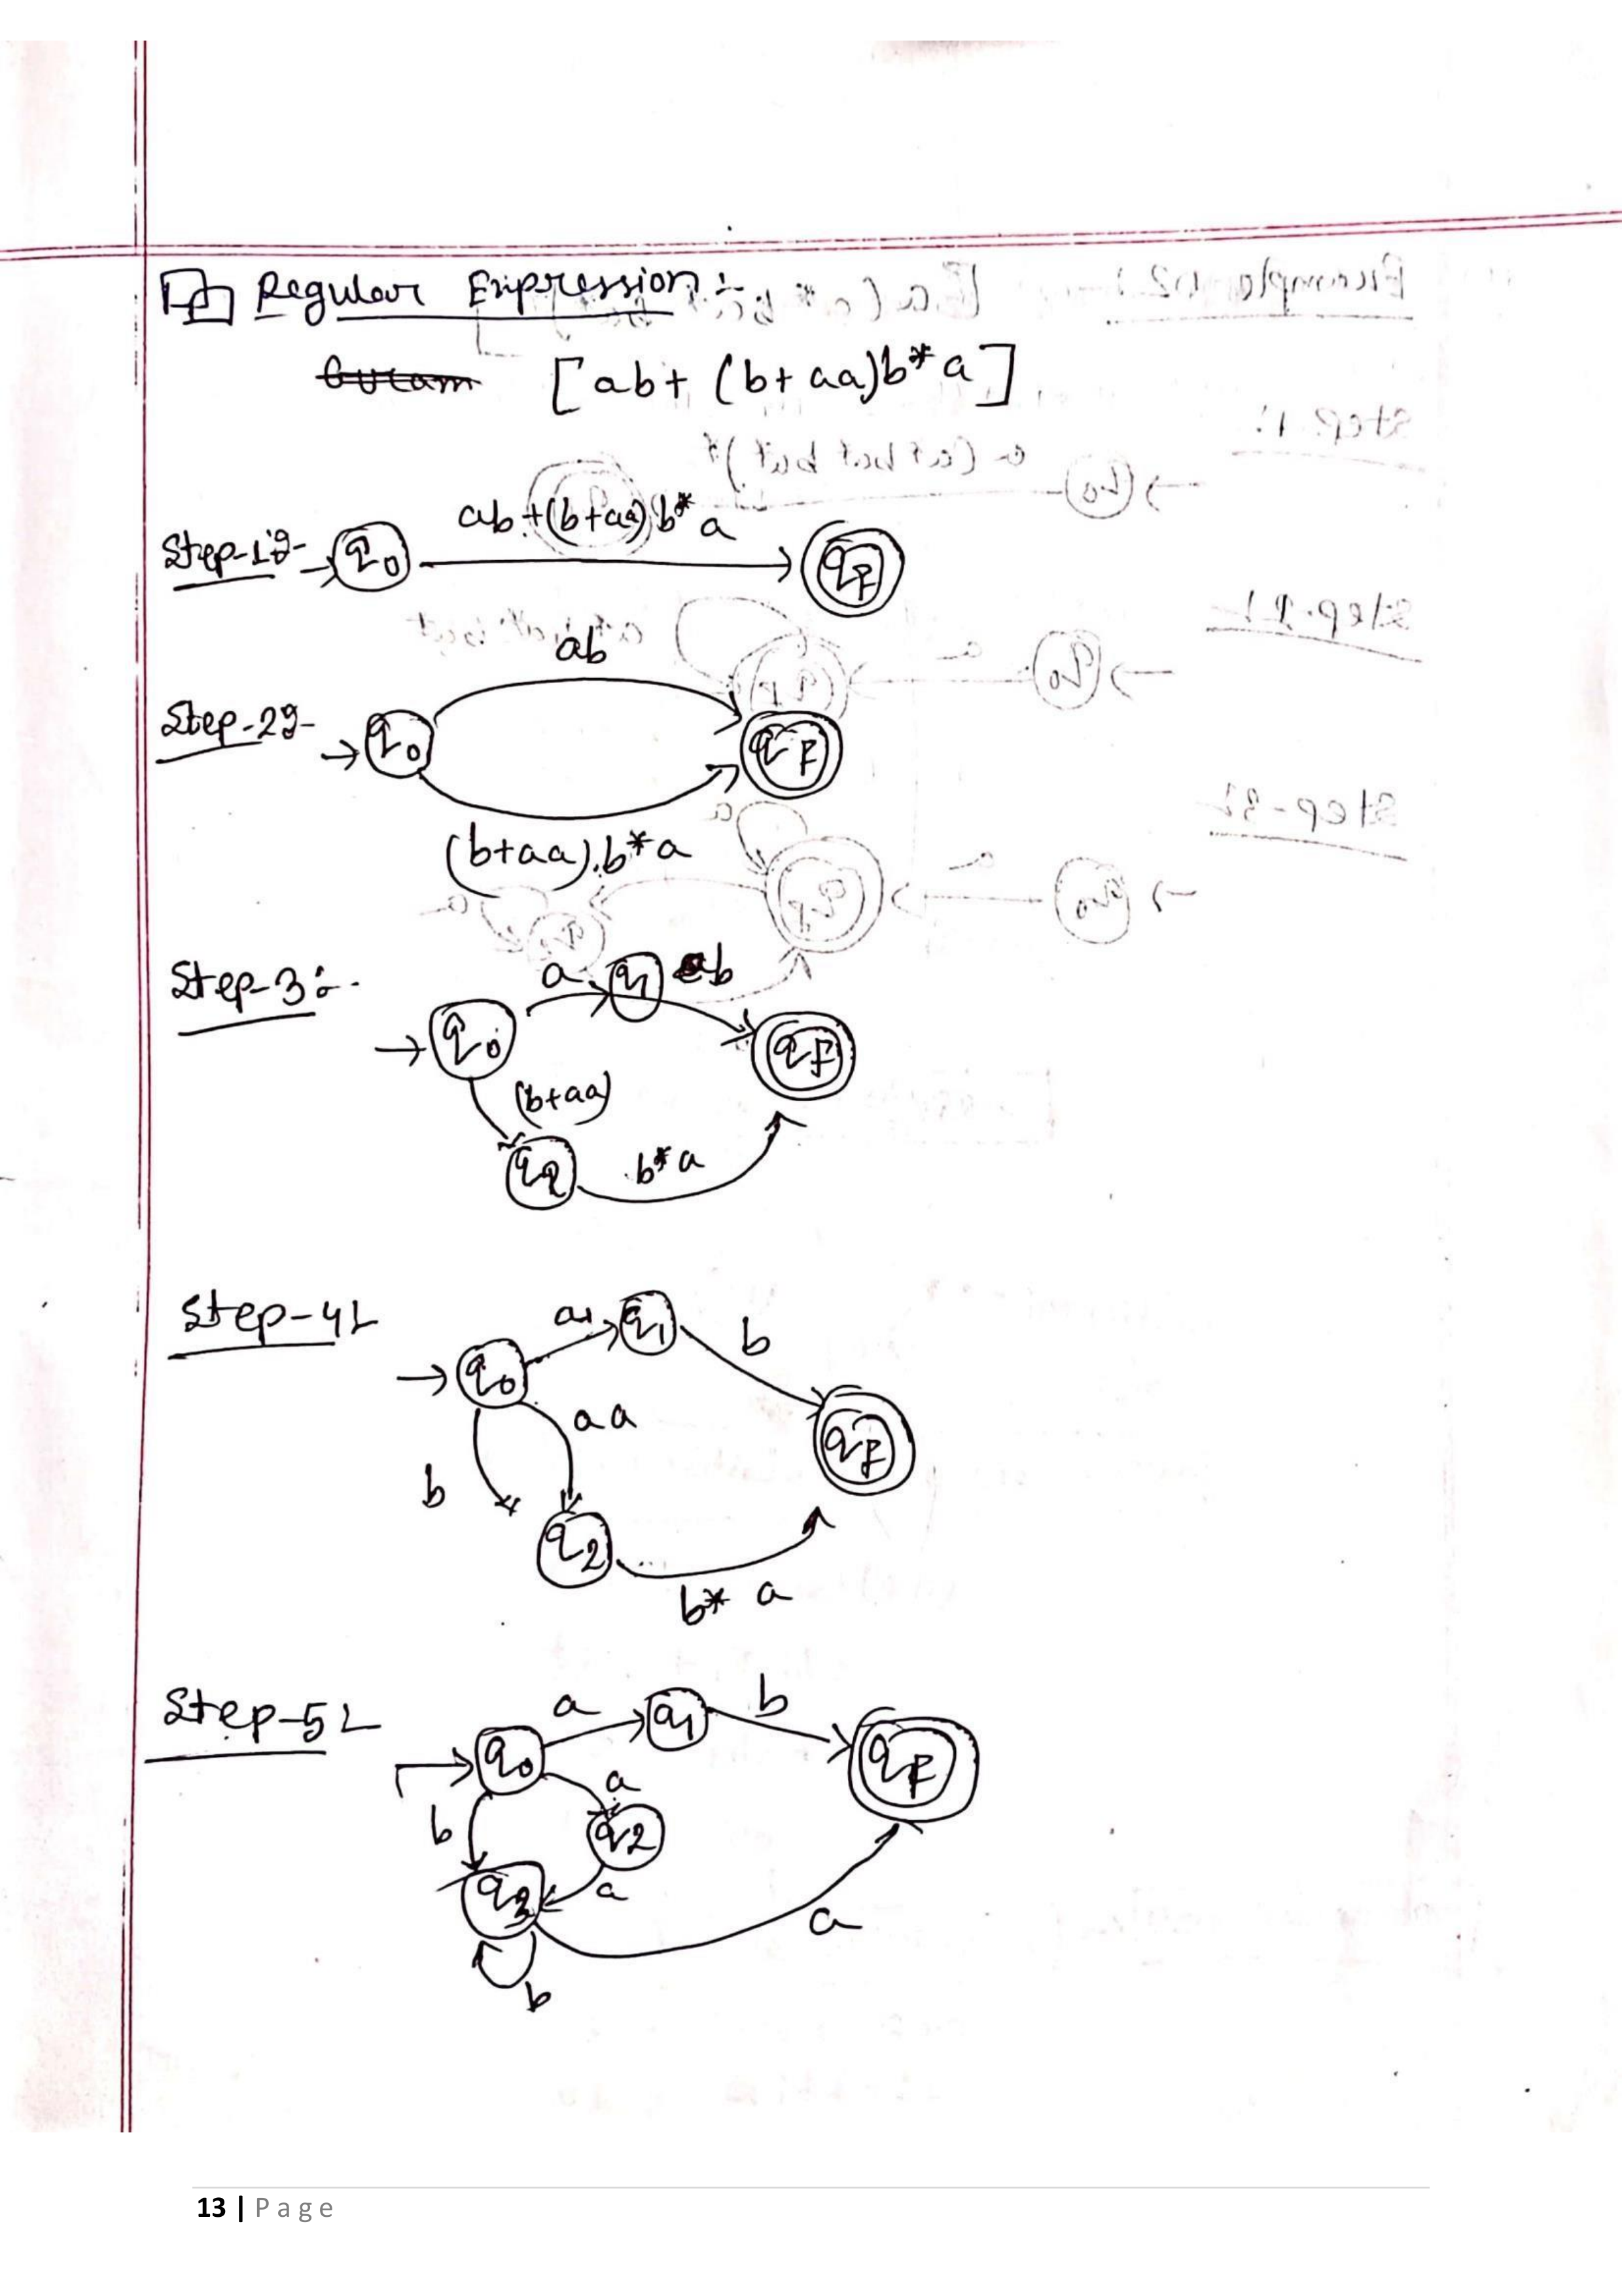 Regular Expression :-
[ab + (b+aa)b*a]
Step-1:- q0 ab+(b+aa).b*a qf
ab
Step-2:- q0 qf
(b+aa).b*a
Step-3:- a q1 b
q0 qf
(b+aa)
q2 b*a
Step-4:- a q1 b
q0
aa
qf
b
q2
b* a
Step-5:- a q1 b
q0 qf
a
b q2
q3 a
a
b
13 | Page